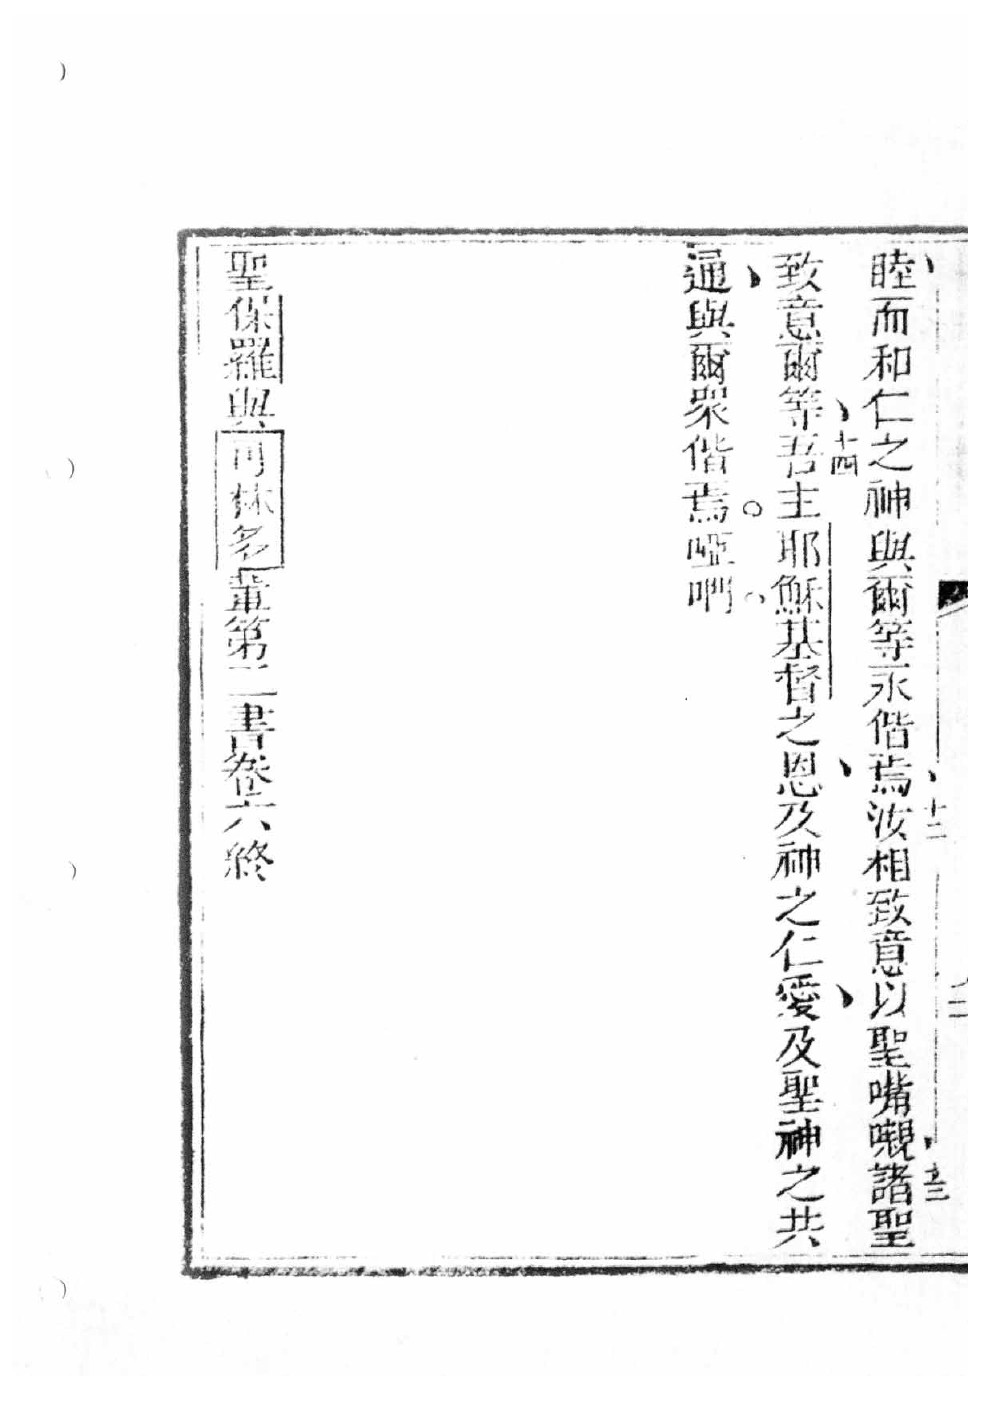 睦而和仁之神與爾等永偕焉十二汝相致意以聖嘴嚫十三諸聖
致意爾等十四吾主耶穌基督之恩及神之仁愛及聖神之共
通與爾眾偕焉。啞吶。
聖保羅與可林多輩第二書卷六終